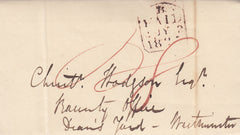 Christr. Hodgson Esqr.
Bounty Office
Dean's Yard - Westminster